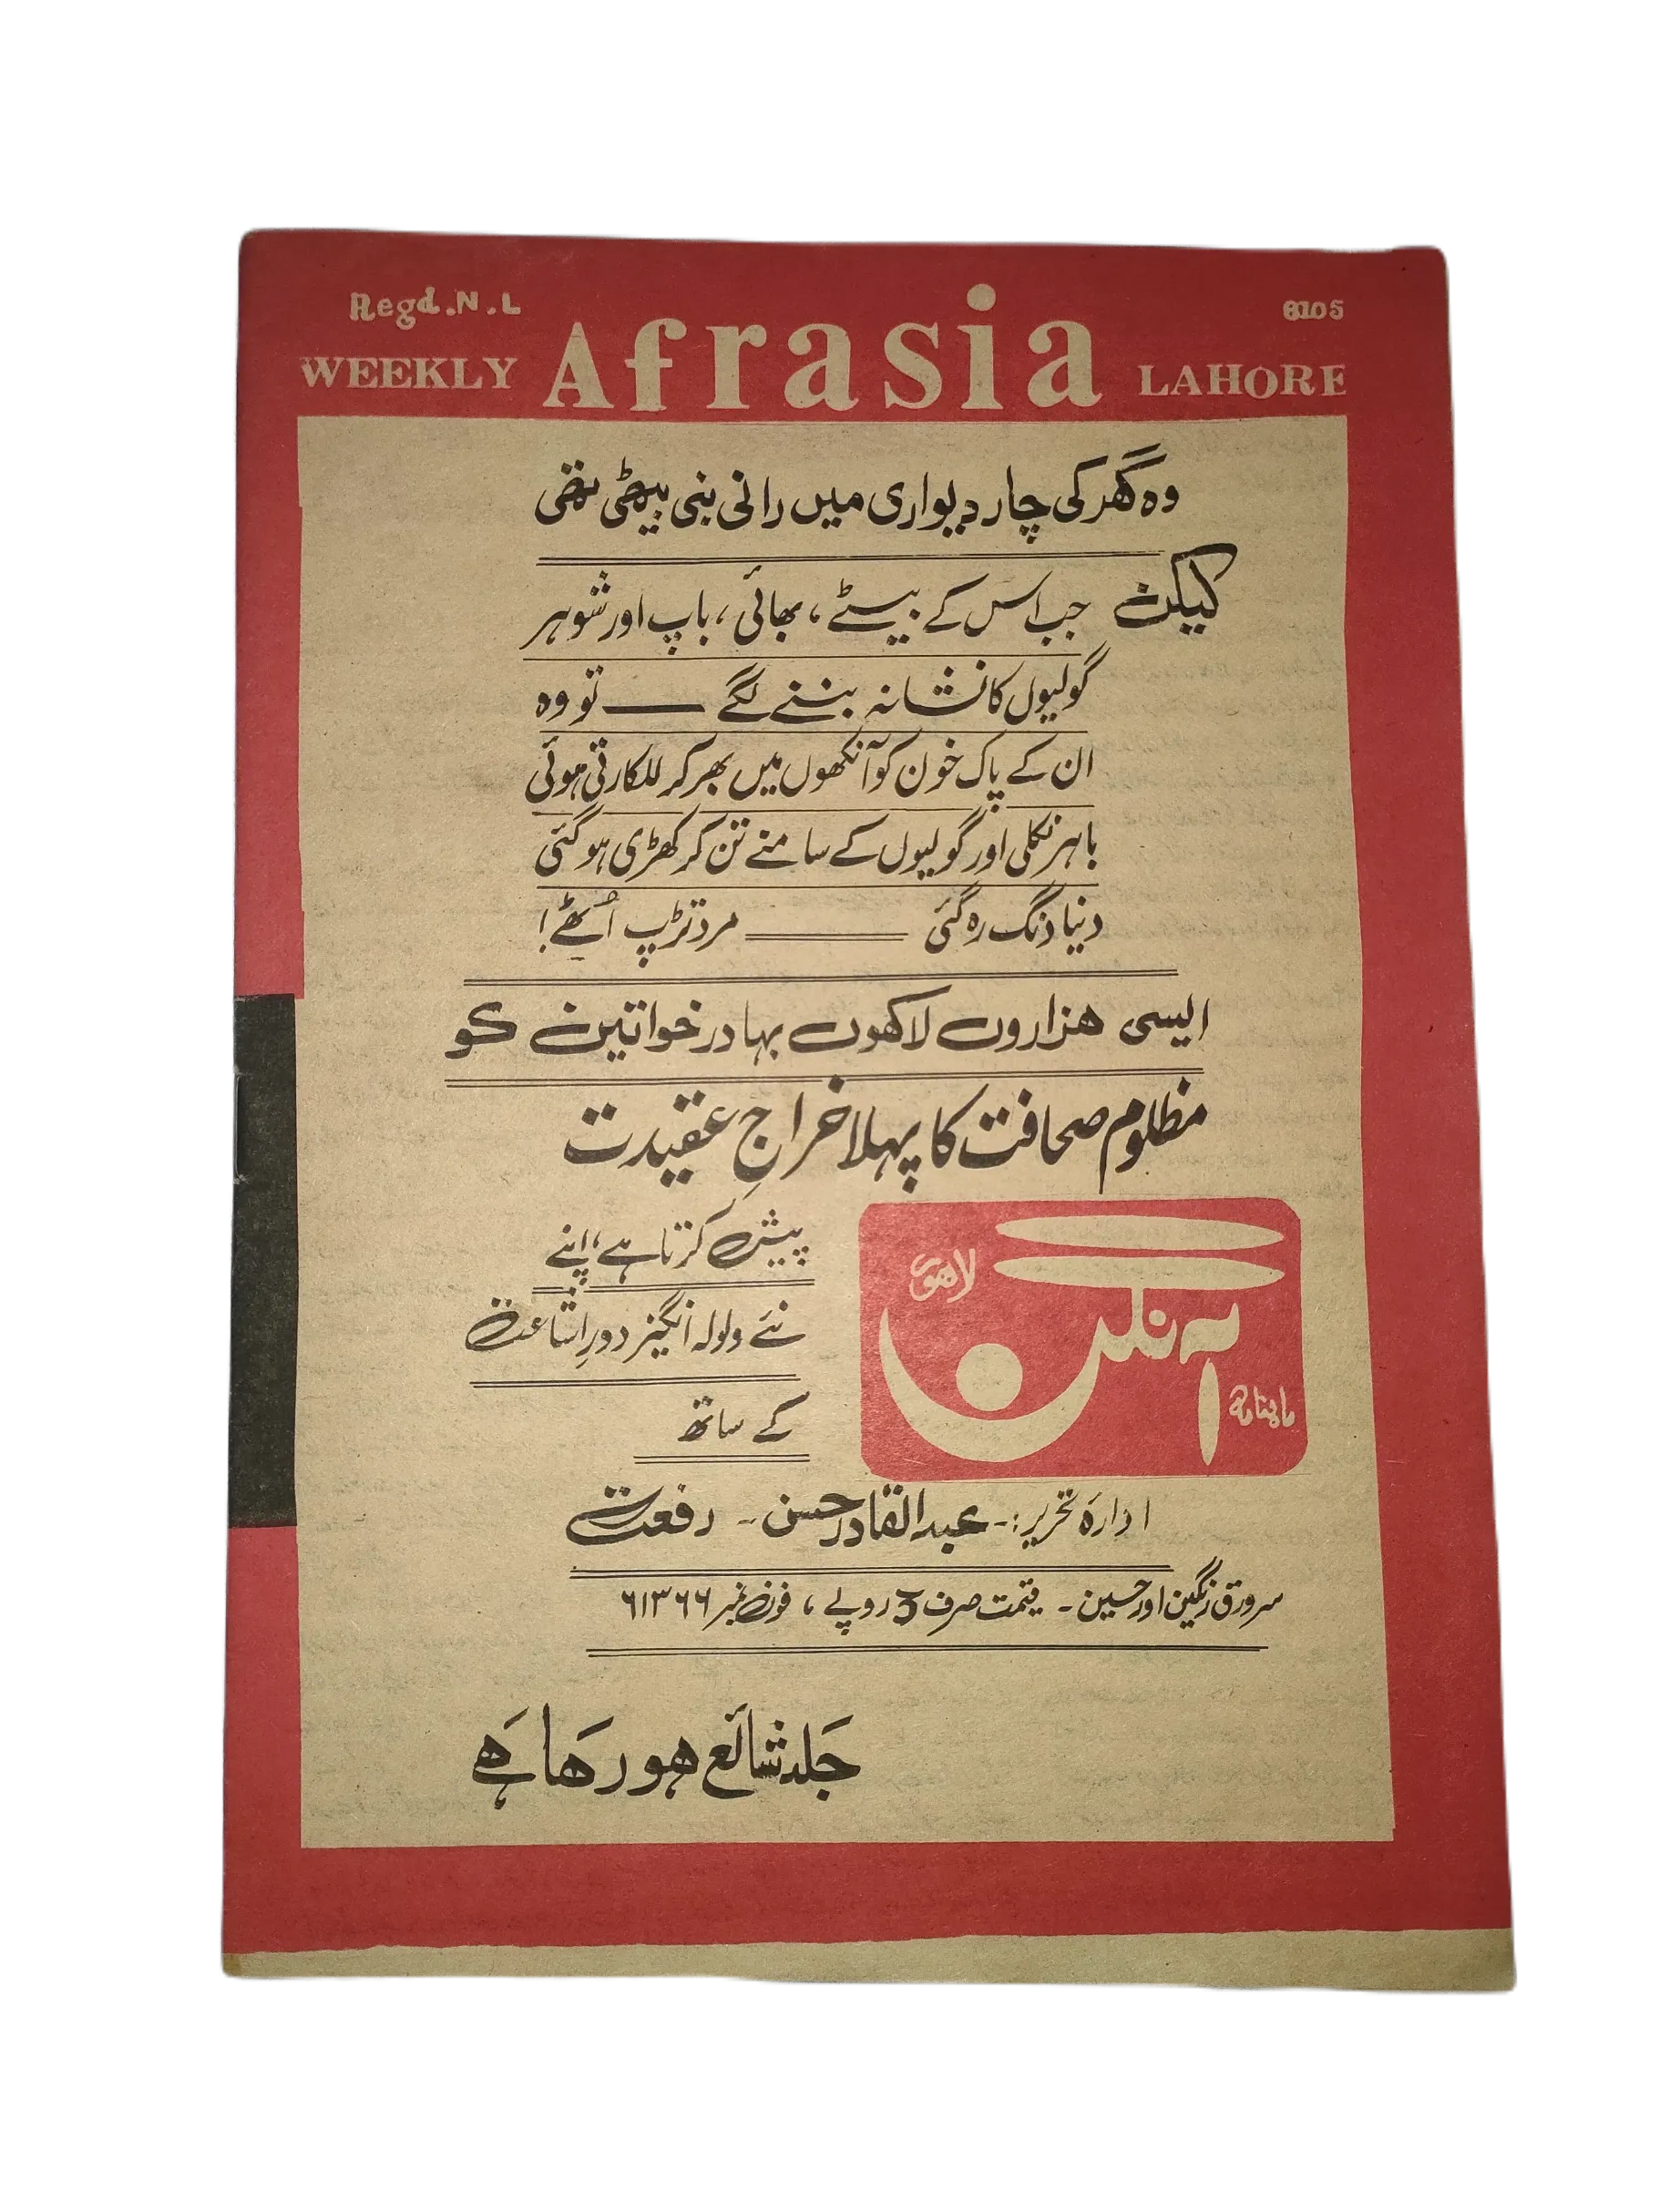 Regd.N.L 6105
WEEKLY Afrasia LAHORE
وہ گھر کی چار دیواری میں رانی بنی بیٹھی تھی
لیکن جب اس کے بیٹے، بھائی، باپ اور شوہر
گولیوں کا نشانہ بننے لگے —— تو وہ
ان کے پاک خون کو آنکھوں میں بھر کر للکارتی ہوئی
باہر نکلی اور گولیوں کے سامنے تن کر کھڑی ہو گئی
دنیا دنگ رہ گئی —— مرد تڑپ اُٹھے!
ایسی ہزاروں لاکھوں بہادر خواتین کو
مظلوم صحافت کا پہلا خراجِ عقیدت
ماہنامہ آنگن لاہور
پیش کرتا ہے، اپنے
نئے ولولہ انگیز دورِ اشاعت
کے ساتھ
ادارۂ تحریر:- عبدالقادر حسن - رفعت
سرورق رنگین اور حسین - قیمت صرف 3 روپے، فون نمبر ۶۱۳۶۶
جَلد شائع ہو رہا ہے